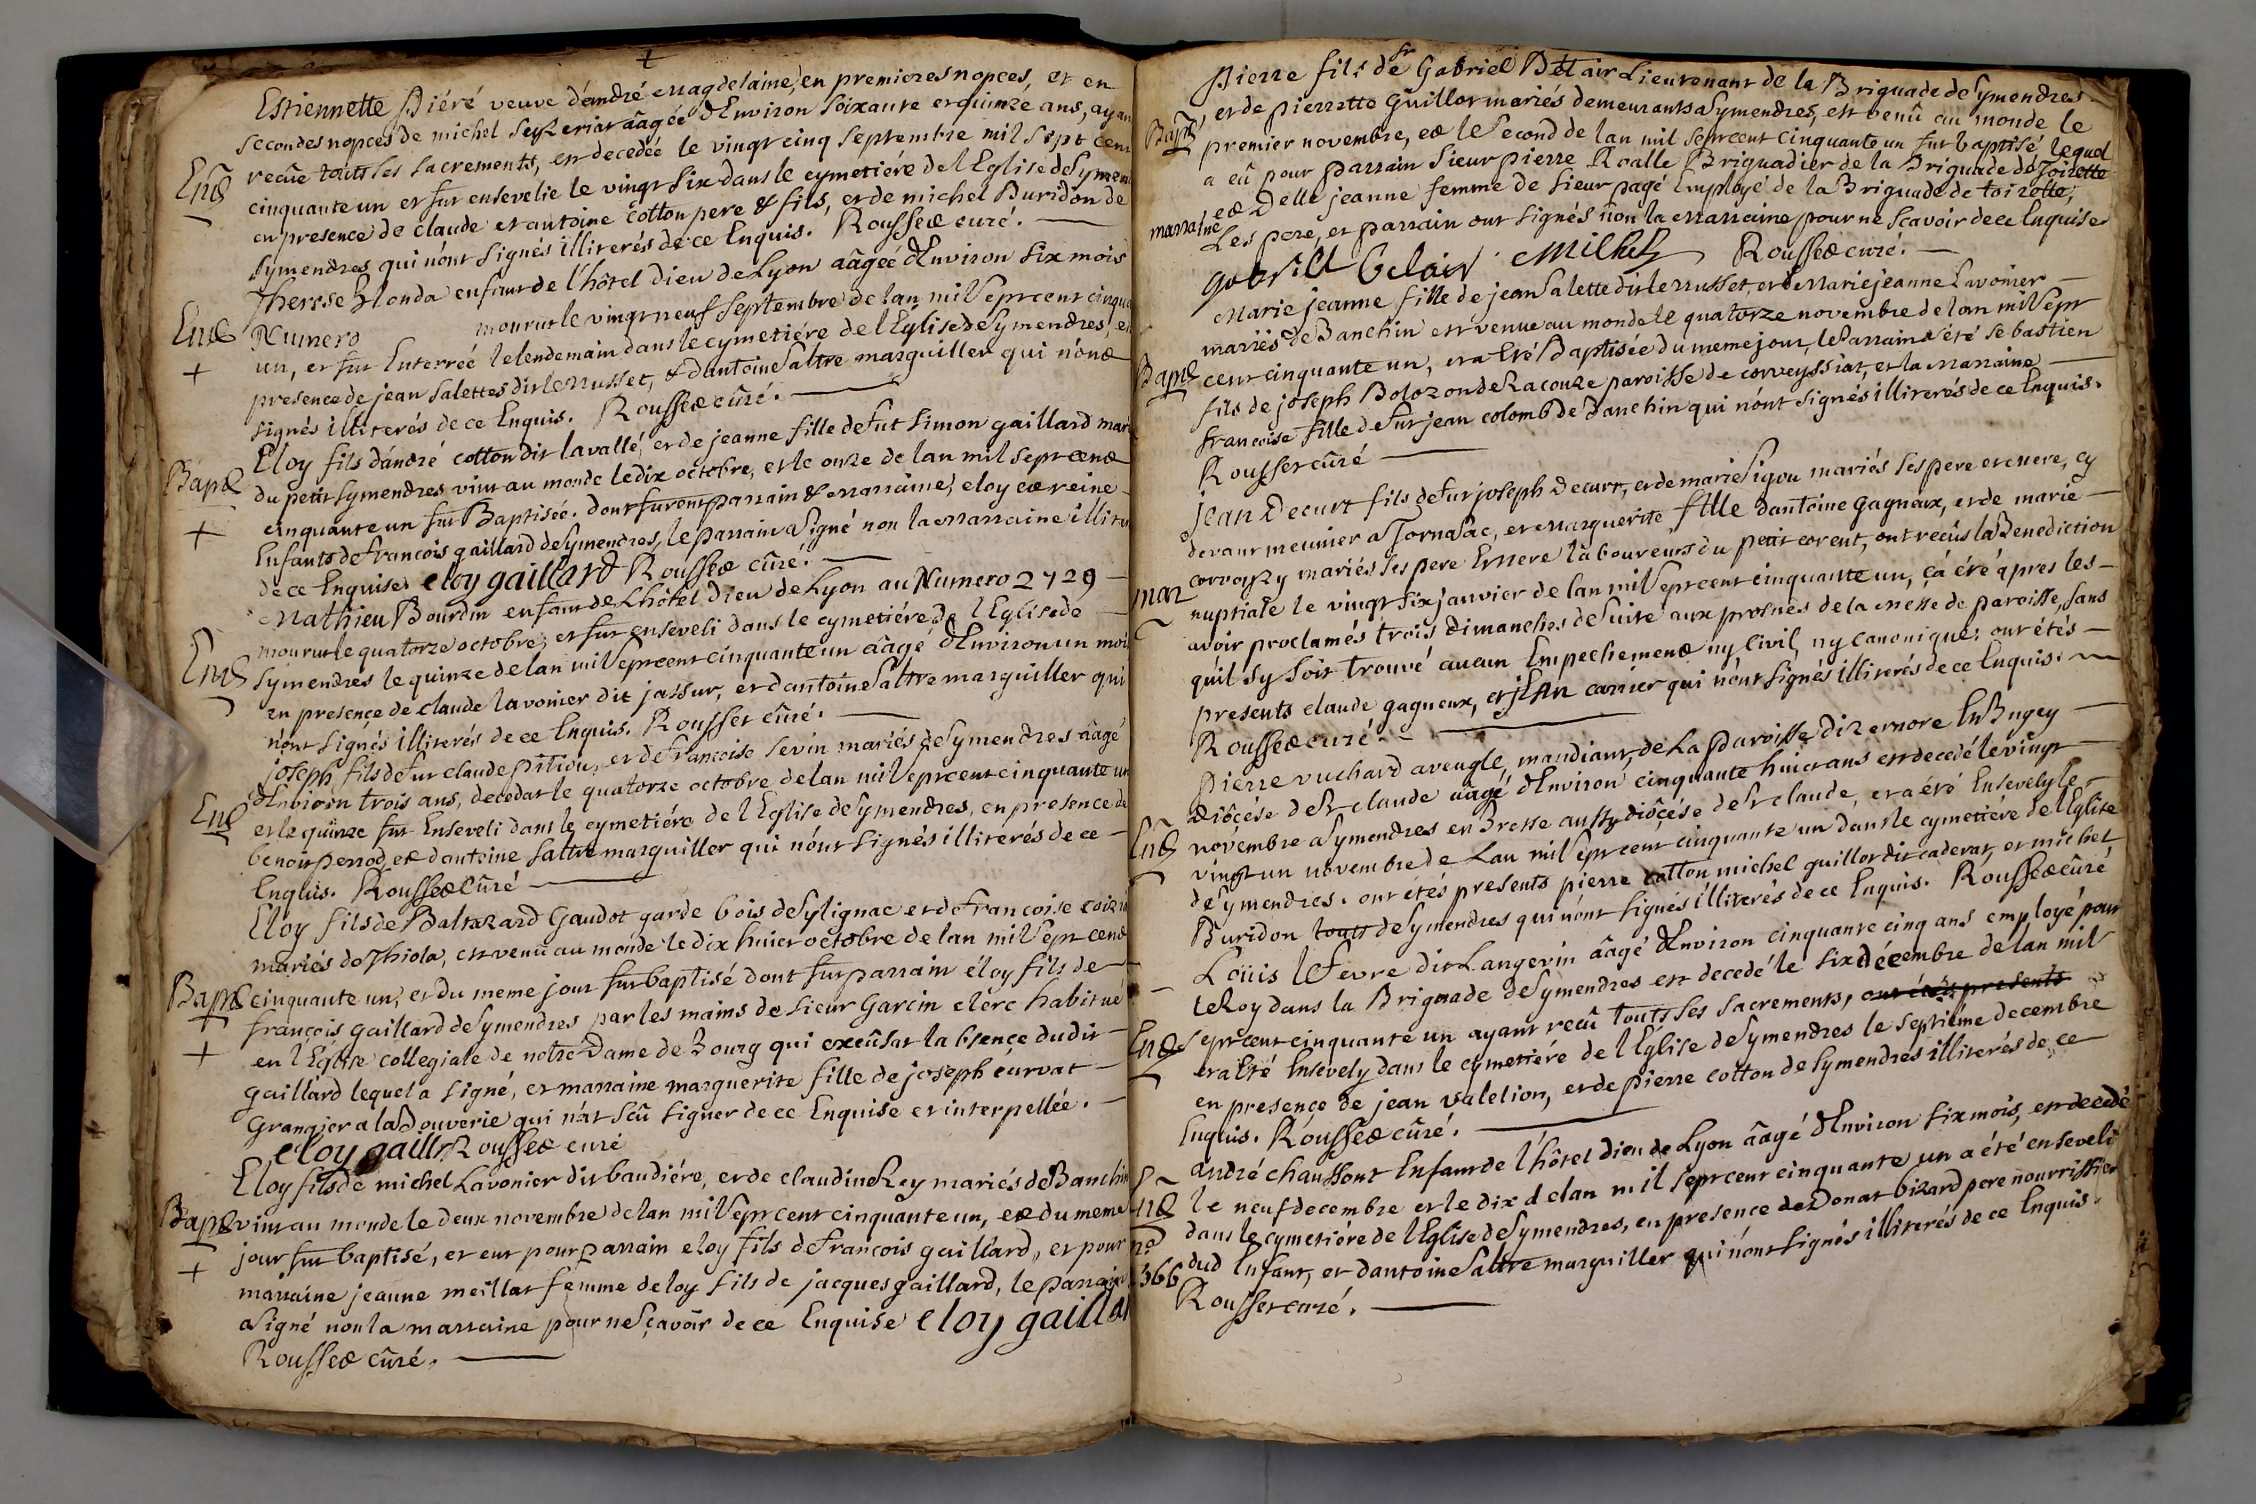 +
Estiennette Piéré veuve dandré magdelaine, en premieres nopces, et en
secondes nopces de michel seyzeriat âagée d'Environ soixante et quinze ans, ayan
Ent
recûe touts les sacrements, est decedée le vingt cinq septembre mil sept cent
cinquante un et fut ensevelie le vingt six dans le cymetiére de l'Eglise de Symen
en presence de claude et antoine cotton pere & fils, et de michel Buridon de
symendres qui n'ont signés illiterés de ce Enquis. Rousset curé.
Therese Blonda enfant de l'hôtel Dieu de Lyon aâgée d'Environ six mois
Ent
Numero mourut le vingt neuf septembre de lan mil sept cent cinqua
+
un, et fut Enterrée le lendemain dans le cymetiére de l'Eglise de Symendres, en
presence de jean salettes dit le Musset, & dantoine saltre marguiller qui n'ont
signés illiterés de ce Enquis. Rousset cûré.
Eloy fils dandré cotton dit lavallé, et de jeanne fille de fut simon gaillard mari
Bapt
du petit symendres vint au monde le dix octobre, et le onze de lan mil sept cent
+
cinquante un fut Baptisée. dont furent parrain & marraine, eloy et reine
Enfants de francois gaillard de symendres, le parrain a signé non la marraine illiter
de ce Enquise eloy gaillard Rousset cûré.
Mathieu Bourdin enfant de Lhôtel Dieu de Lyon au Numero 2729
mourut le quatorze octobre, et fut enseveli dans le cymetiére de l'Eglise de
Ent
symendres le quinze de lan mil sept cent cinquante un âagé d'Environ un moi
en presençe de claude lavonier dit jassur, et dantoine saltre marguiller qui
n'ont signés illiterés de ce Enquis. Rousset cûré.
joseph fils de fut claude pitiou, et de francoise sevin mariés de symendres âagé
d'Environ trois ans, decedat le quatorze octobre de lan mil sept cent cinquante un
Ent
et le quinze fut Enseveli dans le cymetiére de l'Eglise de Symendres, en presence de
benoit perrod, et dantoine saltre marguiller qui n'ont signés illiterés de ce
Enquis. Rousset Cûré
Eloy fils de Baltazard Gaudot garde bois de Sylignac et de francoise
mariés de Thiola, est venu au monde le dix huict octobre de lan mil sept cent
Bapt
cinquante un, et du meme jour fut baptisé dont fut parrain éloy fils de
+
françois gaillard de symendres par les mains de sieur Garcin clerc habitué
+
en l'Eglise collegiale de notre Dame de Bourg qui excûsat labsençe dudit
gaillard lequel a signé, et marraine marguerite fille de joseph curvat
Grangier a la Douverie qui n'at sçû signer de ce Enquise et interpellée.
eloy gaill Rousset curé
Eloy fils de michel Lavonier dit baudiére, et de claudine Rey mariés de Banchin
Bapt
vint au monde le deux novembre de lan mil sept cent cinquante un, et du meme
jour fut baptisé, et eut pour parrain eloy fils de francois gaillard, et pour
+
marraine jeanne meillat femme deloy fils de jacques gaillard, le parrain
a signé non la marraine pour ne sçavoir de ce Enquise eloy gaillar
Rousset cûré.
Pierre fils de sr Gabriel Bélair Lieutenant de la Briguade de Symendres
et de pierrette Guillot mariés demeurants a Symendres, est venû au monde le
Bapt
premier novembre, et le second de lan mil sept cent cinquante un fut baptisé lequel
a eû pour parrain sieur pierre Roalle Briguadier de la Briguade de Toirette
marraine
et Delle jeanne femme de sieur pagé Employé de la Briguade de toirette,
Les pere, et parrain ont signés non la marraine pour ne sçavoir de ce Enquise
gabrill belair Rousset curé.
Marie jeanne fille de jean salette dit le musset, et de Marie jeanne Lavonier
mariés de Banchin est venue au monde le quatorze novembre de lan mil sept
Bapt
cent cinquante un, et a Eté Baptisée du meme jour, le Parrain a été sebastien
fils de joseph Bolozon de Racouze paroisse de corveyssiat, et la marraine
francoise fille de fut jean colomb de Banchin qui n'ont signés illiterés de ce Enquis.
Rousset cûré
jean Decurt fils de fut joseph Decurt, et de marie Sigou mariés ses pere et mere, cy
devant meunier a Tornasac, et Marguerite fille dantoine gagneux, et de marie
corvaizy mariés ses pere Et mere laboureurs du petit corent, ont recûs la Benediction
mar
nuptiale le vingt six janvier de lan mil sept cent cinquante un, ça été apres les
avoir proclamés trois dimanches de suite aux prosnes de la messe de paroisse, sans
quil sy soit trouvé aucun Empechement ny civil, ny canonique, ont étés
presents claude gagneux, et jean carrier qui n'ont signés illiterés de ce Enquis.
Rousset curé.
pierre vuchard aveugle, mandiant, de la Paroisse Dizernore En Bugey
diôcése de St claude âagé d'Environ cinquante huict ans est decedé le vingt
Ent
novembre a Symendres en Bresse aussy diôçése de St claude, et a été Ensevely le
vingt un novembre de Lan mil sept cent cinquante un dans le cymetiére de l'Eglise
de symendres. ont étés presents pierre cotton michel guillot dit caderat, et michel
Buridon touts de Symendres qui n'ont signés illiterés de ce Enquis. Rousset cûré
Loüis leFevre dit Langevin âagé d'Environ cinquante cinq ans employé pour
le Roy dans la Briguade de Symendres est decedé le six décembre de lan mil
Ent
sept cent cinquante un ayant recû touts ses sacrements, ont étés presents
et a Eté Ensevely dans le cymetiére de l'Eglise de Symendres le septiéme decembre
en presençe de jean valetion, et de pierre cotton de symendres illiterés de ce
Enquis. Rousset cûré.
andré chaussont Enfant de l'hôtel dieu de Lyon âagé d'Environ six mois, est decedé
Ent
le neuf decembre et le dix de lan mil sept cent cinquante un a été enseveli
no
dans le cymetiére de l'Eglise de Symendres, en presence de Donat bizard pere nourrissier
366
dud Enfant, et dantoine saltre marguiller qui n'ont signés illiterés de ce Enquis.
Rousset curé.